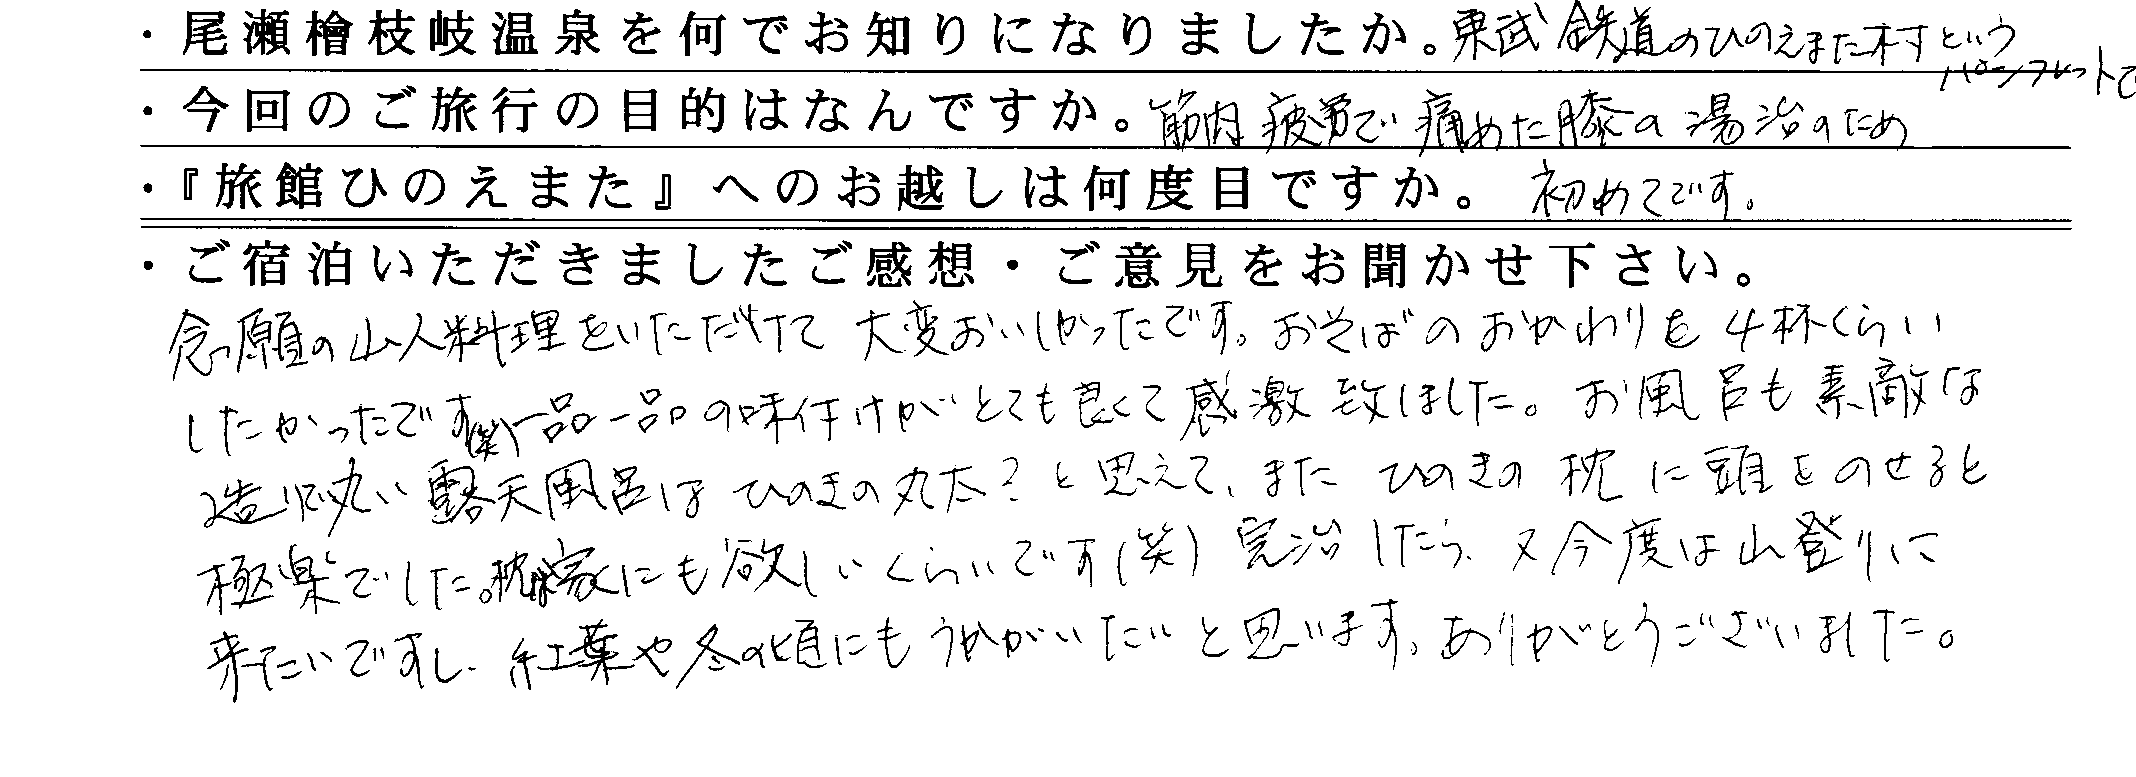 ・尾瀬檜枝岐温泉を何でお知りになりましたか。東武鉄道のひのえまた村という
パンフレットで
・今回のご旅行の目的はなんですか。筋肉疲労で痛めた膝の湯治のため
・『旅館ひのえまた』へのお越しは何度目ですか。初めてです。
・ご宿泊いただきましたご感想・ご意見をお聞かせ下さい。
念願の山人料理をいただけて大変おいしかったです。おそばのおかわりを4杯くらい
したかったです(笑)一品一品の味付けがとても良くて感激致しました。お風呂も素敵な
造りで丸い露天風呂はひのきの丸太?と思えて、またひのきの枕に頭をのせると
極楽でした。枕は家にも欲しいくらいです(笑)完治したら、又今度は山登りに
来たいですし、紅葉や冬の頃にもうかがいたいと思います。ありがとうございました。